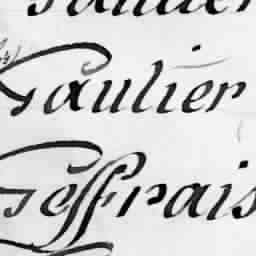 Gaulier
Geffrais